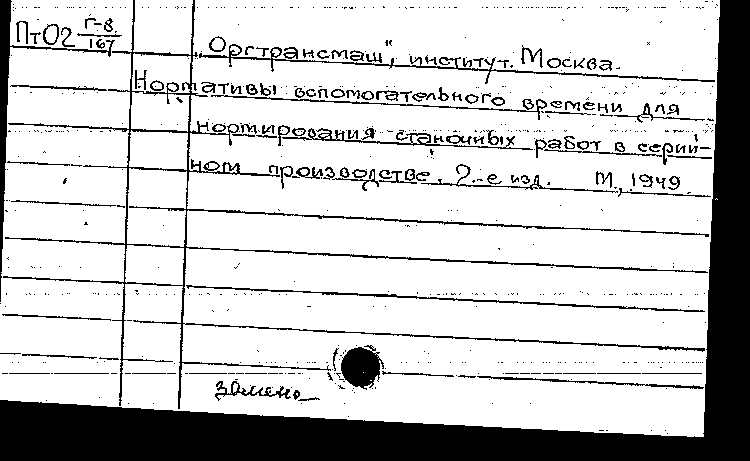 ПтО2 Г-8/167
„Оргтрансмаш", институт. Москва.
Нормативы вспомогательного времени для
нормирования станочных работ в серий-
ном производстве. 2-е изд. М., 1949.
замена